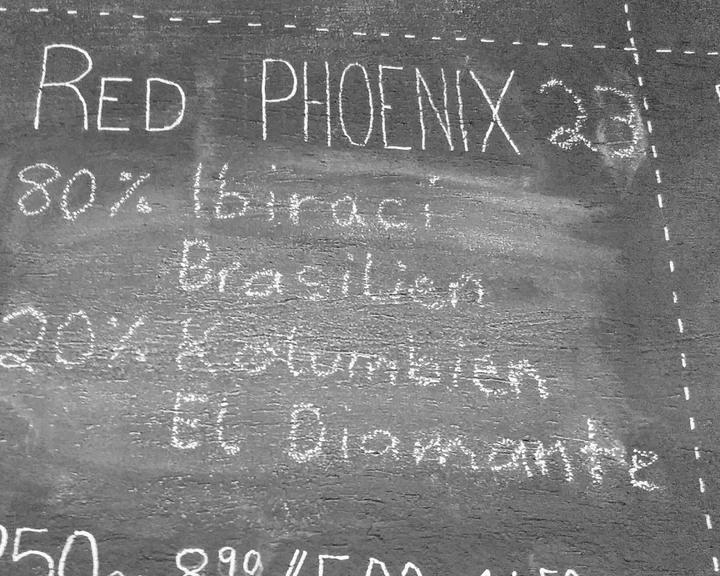 RED PHOENIX 23
80% Ibiraci
Brasilien
20% Kolumbien
El Diamante
250g 8,90 //